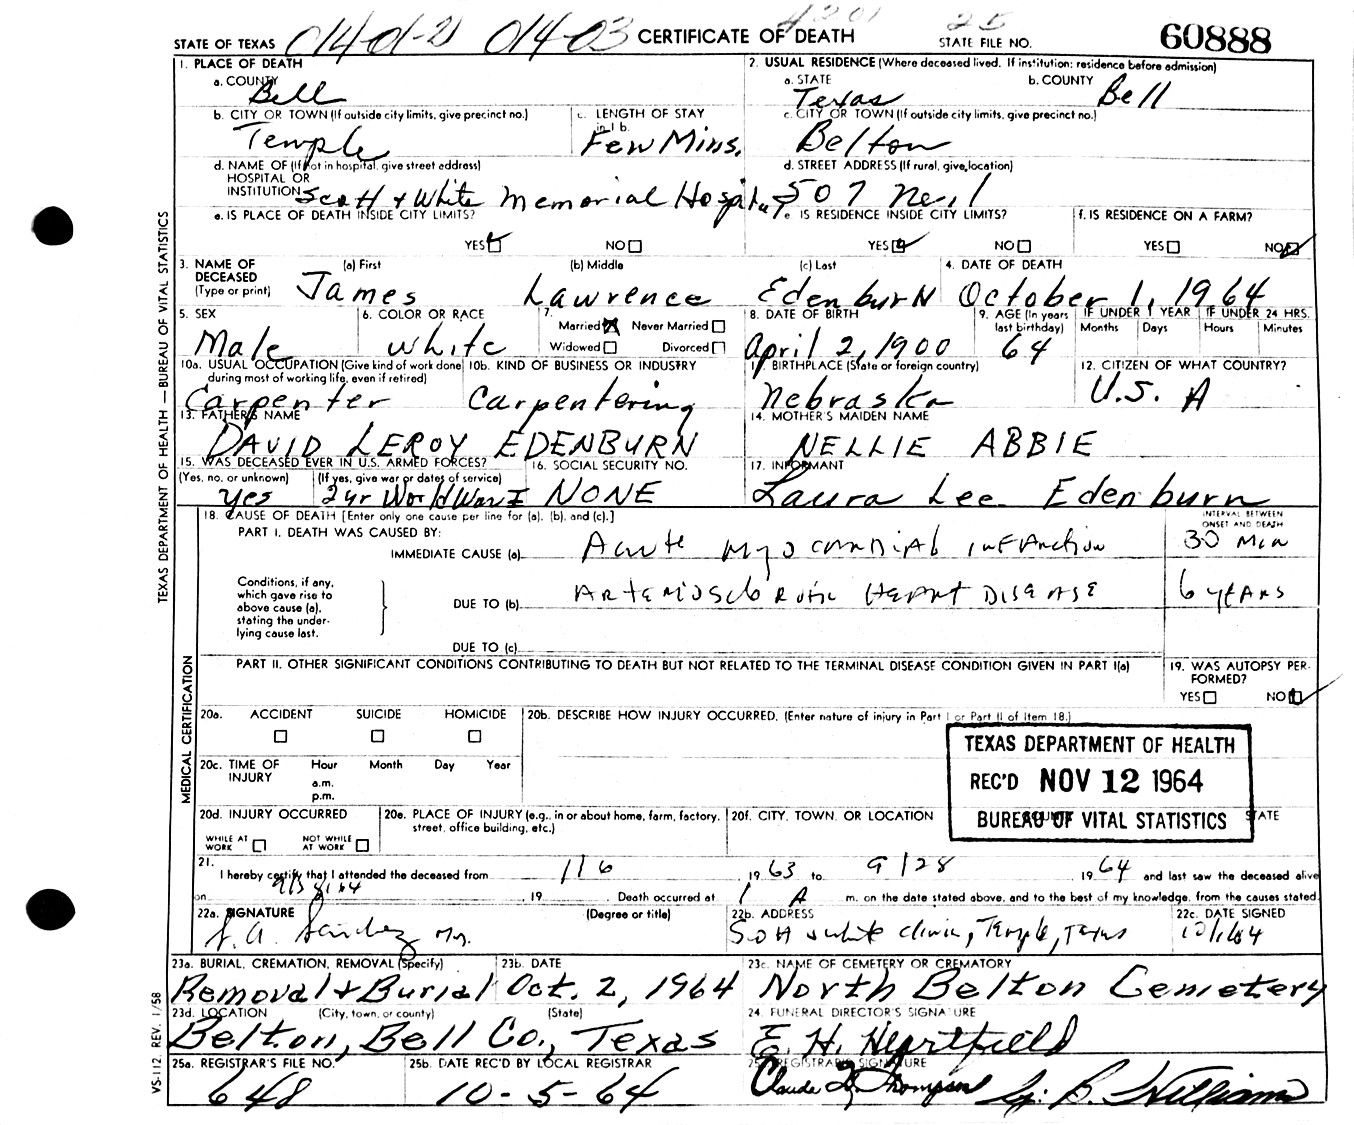 4201 25
STATE OF TEXAS 014-01-2 014-03 CERTIFICATE OF DEATH STATE FILE NO. 60888
1. PLACE OF DEATH
a. COUNTY
Bell
2. USUAL RESIDENCE (Where deceased lived. If institution: residence before admission)
a. STATE b. COUNTY
Texas Bell
b. CITY OR TOWN (If outside city limits, give precinct no.) c. LENGTH OF STAY
in 1 b.
Temple Few Mins.
c. CITY OR TOWN (If outside city limits, give precinct no.)
Belton
d. NAME OF (If not in hospital, give street address)
HOSPITAL OR
INSTITUTION Scott & White Memorial Hospital
d. STREET ADDRESS (If rural, give location)
507 Neil
e. IS PLACE OF DEATH INSIDE CITY LIMITS?
YES NO
e. IS RESIDENCE INSIDE CITY LIMITS?
YES NO
f. IS RESIDENCE ON A FARM?
YES NO
3. NAME OF
DECEASED
(Type or print)
(a) First (b) Middle (c) Last
James Lawrence Edenburn
4. DATE OF DEATH
October 1, 1964
5. SEX
Male
6. COLOR OR RACE
White
7.
Married Never Married
Widowed Divorced
8. DATE OF BIRTH
April 2, 1900
9. AGE (In years
last birthday)
64
IF UNDER 1 YEAR IF UNDER 24 HRS.
Months Days Hours Minutes
10a. USUAL OCCUPATION (Give kind of work done
during most of working life, even if retired)
Carpenter
10b. KIND OF BUSINESS OR INDUSTRY
Carpentering
11. BIRTHPLACE (State or foreign country)
Nebraska
12. CITIZEN OF WHAT COUNTRY?
U.S. A
13. FATHER'S NAME
DAVID LEROY EDENBURN
14. MOTHER'S MAIDEN NAME
NELLIE ABBIE
15. WAS DECEASED EVER IN U.S. ARMED FORCES?
(Yes, no, or unknown) (If yes, give war or dates of service)
Yes 2 yr World War I
16. SOCIAL SECURITY NO.
NONE
17. INFORMANT
Laura Lee Edenburn
18. CAUSE OF DEATH [Enter only one cause per line for (a), (b), and (c).]
PART I. DEATH WAS CAUSED BY:
IMMEDIATE CAUSE (a) Acute myocardial infarction
INTERVAL BETWEEN
ONSET AND DEATH
30 min
Conditions, if any,
which gave rise to
above cause (a),
stating the under-
lying cause last.
DUE TO (b) Arteriosclerotic Heart Disease 6 years
DUE TO (c)
PART II. OTHER SIGNIFICANT CONDITIONS CONTRIBUTING TO DEATH BUT NOT RELATED TO THE TERMINAL DISEASE CONDITION GIVEN IN PART I(a)
19. WAS AUTOPSY PER-
FORMED?
YES NO
20a. ACCIDENT SUICIDE HOMICIDE
20b. DESCRIBE HOW INJURY OCCURRED. (Enter nature of injury in Part I or Part II of Item 18.)
20c. TIME OF
INJURY
Hour Month Day Year
a.m.
p.m.
TEXAS DEPARTMENT OF HEALTH
REC'D NOV 12 1964
BUREAU OF VITAL STATISTICS
20d. INJURY OCCURRED
WHILE AT
WORK
NOT WHILE
AT WORK
20e. PLACE OF INJURY (e.g., in or about home, farm, factory,
street, office building, etc.)
20f. CITY, TOWN, OR LOCATION COUNTY STATE
21.
I hereby certify that I attended the deceased from 1/6 1963 to 9/28 1964 and last saw the deceased alive
on 9/28/64, 19 . Death occurred at 1 A m. on the date stated above, and to the best of my knowledge, from the causes stated.
22a. SIGNATURE (Degree or title)
22b. ADDRESS
Temple, Texas
22c. DATE SIGNED
10/1/64
23a. BURIAL, CREMATION, REMOVAL (Specify)
Removal & Burial
23b. DATE
Oct. 2, 1964
23c. NAME OF CEMETERY OR CREMATORY
North Belton Cemetery
23d. LOCATION (City, town, or county) (State)
Belton, Bell Co., Texas
24. FUNERAL DIRECTOR'S SIGNATURE
E. H. Heartfield
25a. REGISTRAR'S FILE NO.
648
25b. DATE REC'D BY LOCAL REGISTRAR
10-5-64
REGISTRAR'S SIGNATURE
Claude Thompson B. Williams
TEXAS DEPARTMENT OF HEALTH — BUREAU OF VITAL STATISTICS
MEDICAL CERTIFICATION
VS-112 REV. 1/58